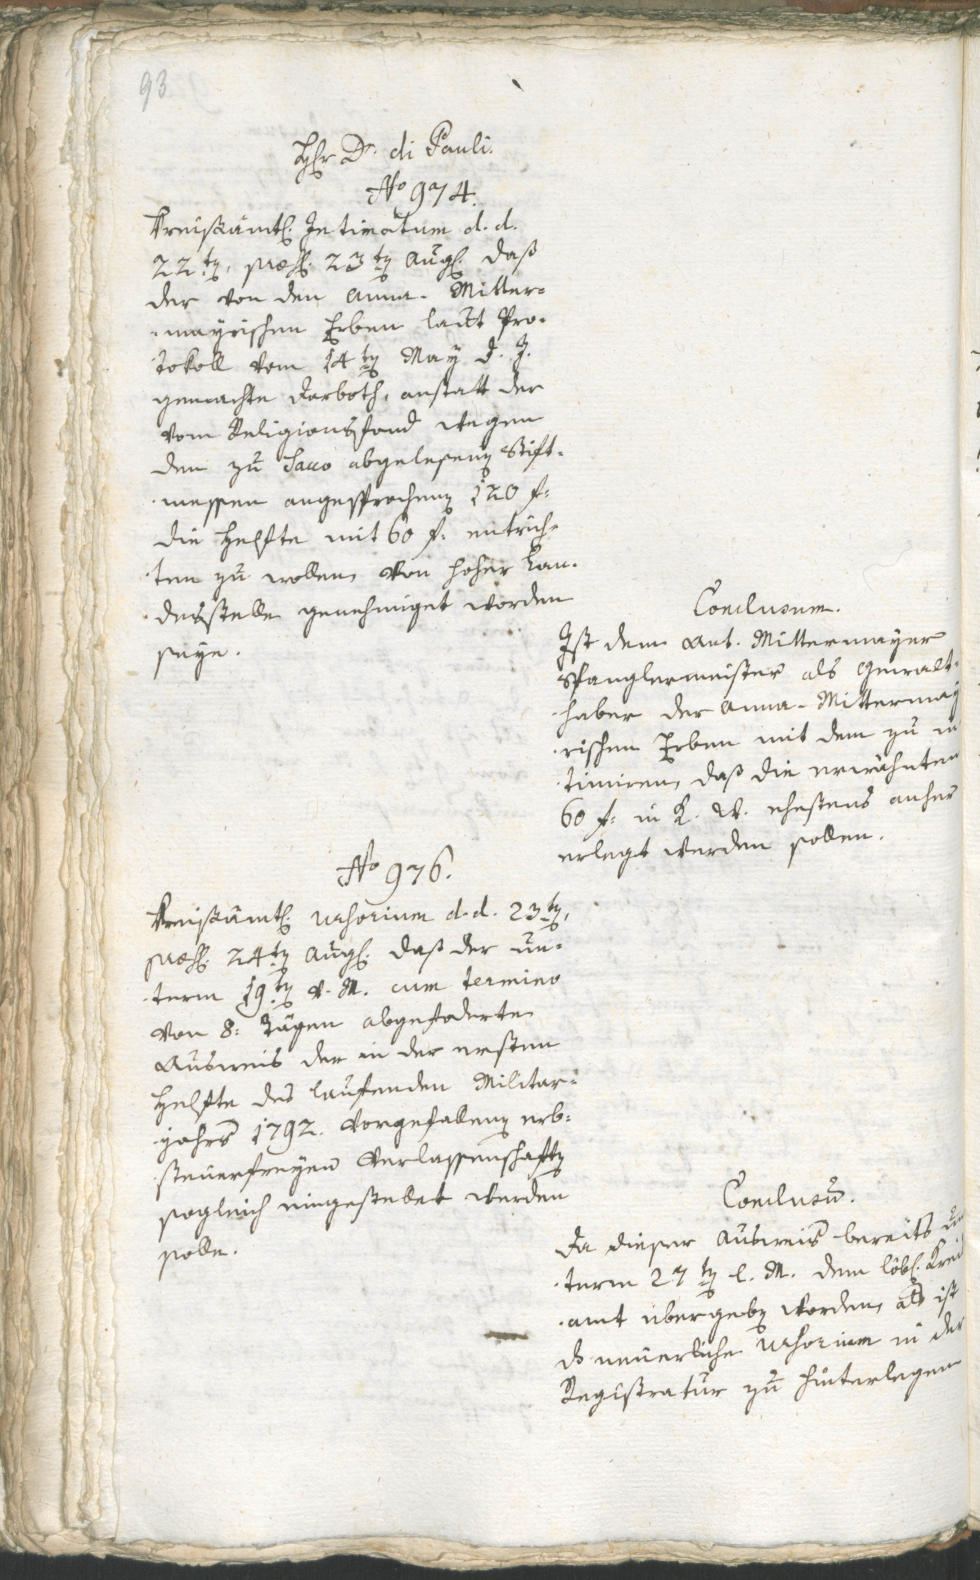 93
Hhr Dr. di Pauli.
No 974.
Kreisämtl. Intimatum d. d.
22ten, præs. 23ten Aug. daß
der von den Anna-Mitter=
mayrischen Erben laut Pro=
tokoll vom 14ten May d. J.
gemachte Anboth, anstatt der
vom Religionsfond wegen
den zu Sacco abgelesenen Stift=
messen angesprochenen 120 f:
die Helfte mit 60 f: entrich=
ten zu wollen, von hoher Lan=
desstelle genehmiget worden
seye.
Conclusum.
Ist dem Ant. Mittermayer
Spanglermeister als Gewalt=
haber der Anna-Mittermay
rischen Erben mit dem zu in
timiren, daß die erwähnten
60 f: in K. W. ehestens anher
erlegt werden sollen.
No 976.
Kreisämtl. Urhorium d. d. 23ten,
præs. 24ten Aug. daß der un=
term 19ten v. M. cum termino
von 8: Tägen abgeforderte
Ausweis der in der ersten
Helfte des laufenden Militar=
jahrs 1792. vorgefallenen erb=
steuerfreyen Verlassenschaften
sogleich eingestellet werden
solle.
Conclusum.
Da dieser Ausweis bereits un
term 27ten l. M. dem löbl. Kreis
amt übergeben worden, als ist
das neuerliche Urhorium in der
Registratur zu hinterlegen